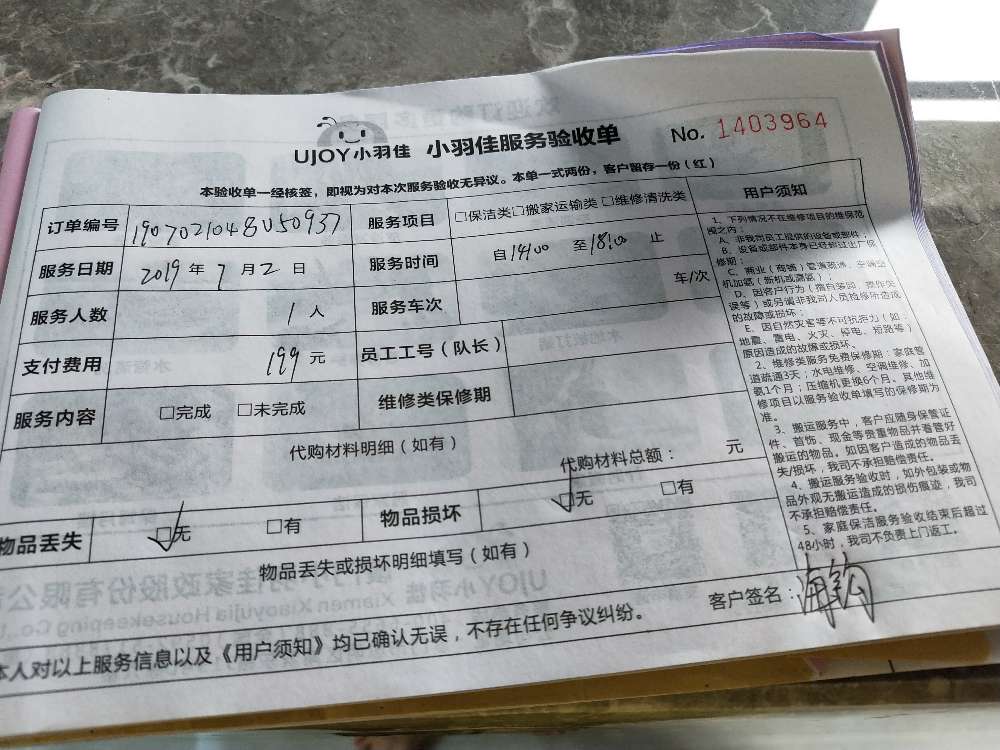 UJOY小羽佳 小羽佳服务验收单 No. 1403964
本验收单一经核签，即视为对本次服务验收无异议。本单一式两份，客户留存一份（红）
订单编号 1907021048U50937 服务项目 □保洁类□搬家运输类□维修清洗类
服务日期 2019 年 7 月 2 日 服务时间 自14:00 至18:00 止
服务人数 1 人 服务车次 车/次
支付费用 199 元 员工工号（队长）
服务内容 □完成 □未完成 维修类保修期
代购材料明细（如有）
代购材料总额： 元
物品丢失 □无 □有 物品损坏 □无 □有
物品丢失或损坏明细填写（如有）
客户签名：
本人对以上服务信息以及《用户须知》均已确认无误，不存在任何争议纠纷。
用户须知
1、下列情况不在维修项目的维保范
围之内：
A、非我司员工提供的设备或部件；
B、设备或部件本身已经超过出厂保
修期；
C、商业（商铺）管道疏通、空调空
机加氨（新机或意氨）；
D、因客户行为（擅自装卸、操作失
误等）或另请非我司人员检修所造成
的故障或损坏；
E、因自然灾害等不可抗拒力（如：
地震、雷电、火灾、停电、短路等）
原因造成的故障或损坏。
2、维修类服务免费保修期：家庭管
道疏通3天；水电维修、空调维修、加
氨1个月；压缩机更换6个月。其他维
修项目以服务验收单填写的保修期为
准。
3、搬运服务中，客户应随身保管证
件、首饰、现金等贵重物品并看管好
搬运的物品。如因客户造成的物品丢
失/损坏，我司不承担赔偿责任。
4、搬运服务验收时，如外包装或物
品外观无搬运造成的损伤痕迹，我司
不承担赔偿责任。
5、家庭保洁服务验收结束后超过
48小时，我司不负责上门返工。